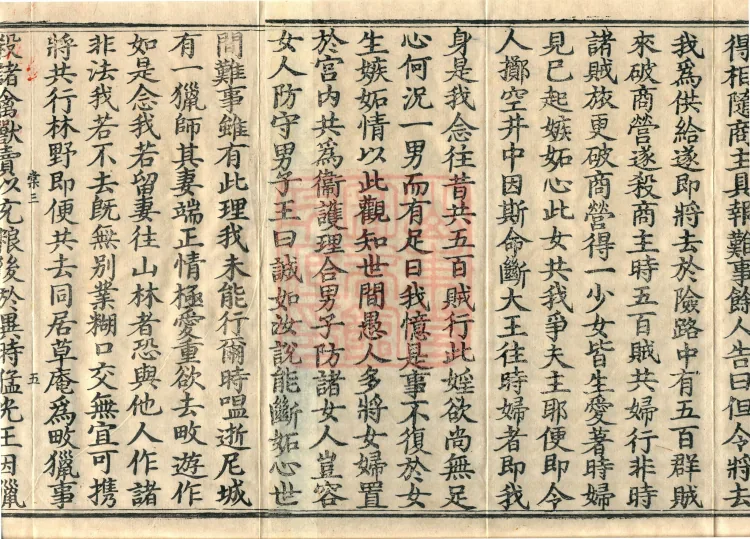 得相隨商主具報難事餘人告曰但令將去
我爲供給遂即將去於險路中有五百群賊
來破商營遂殺商主時五百賊共婦行非時
諸賊旅更破商營得一少女皆生愛著時婦
見已起嫉妬心此女共我爭夫主耶便即令
人擲空井中因斯命斷大王往時婦者即我
身是我念往昔共五百賊行此婬欲尚無足
心何況一男而有足日我憶是事不復於女
生嫉妬情以此觀知世間愚人多將女婦置
於宮内共爲衞護理合男子防諸女人豈容
女人防守男子王曰誠如汝說能斷妬心世
間難事雖有此理我未能行爾時嗢逝尼城
有一獵師其妻端正情極愛重欲去畋遊作
如是念我若留妻往山林者恐與他人作諸
非法我若不去旣無別業糊口交無宜可携
將共行林野即便共去同居草庵爲畋獵事
棠三 五
殺諸禽獸賣以充粮後於異時猛光王因獵